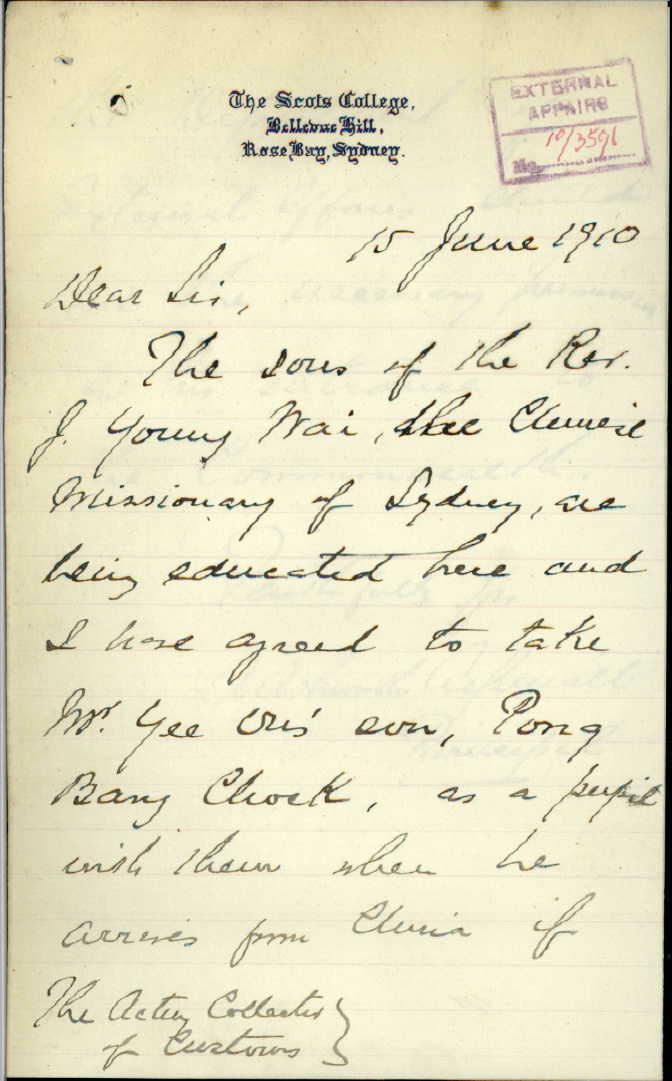 The Scots College,
Bellevue Hill,
Rose Bay, Sydney.
EXTERNAL
AFFAIRS
No. 10/3591
15 June 1910
Dear Sir,
The sons of the Rev.
J. Young Wai, the Chinese
Missionary of Sydney, are
being educated here and
I have agreed to take
Mr. Yee Wis' son, Pong
Bang Chock, as a pupil
with them when he
arrives from China if
The Acting Collector
of Customs